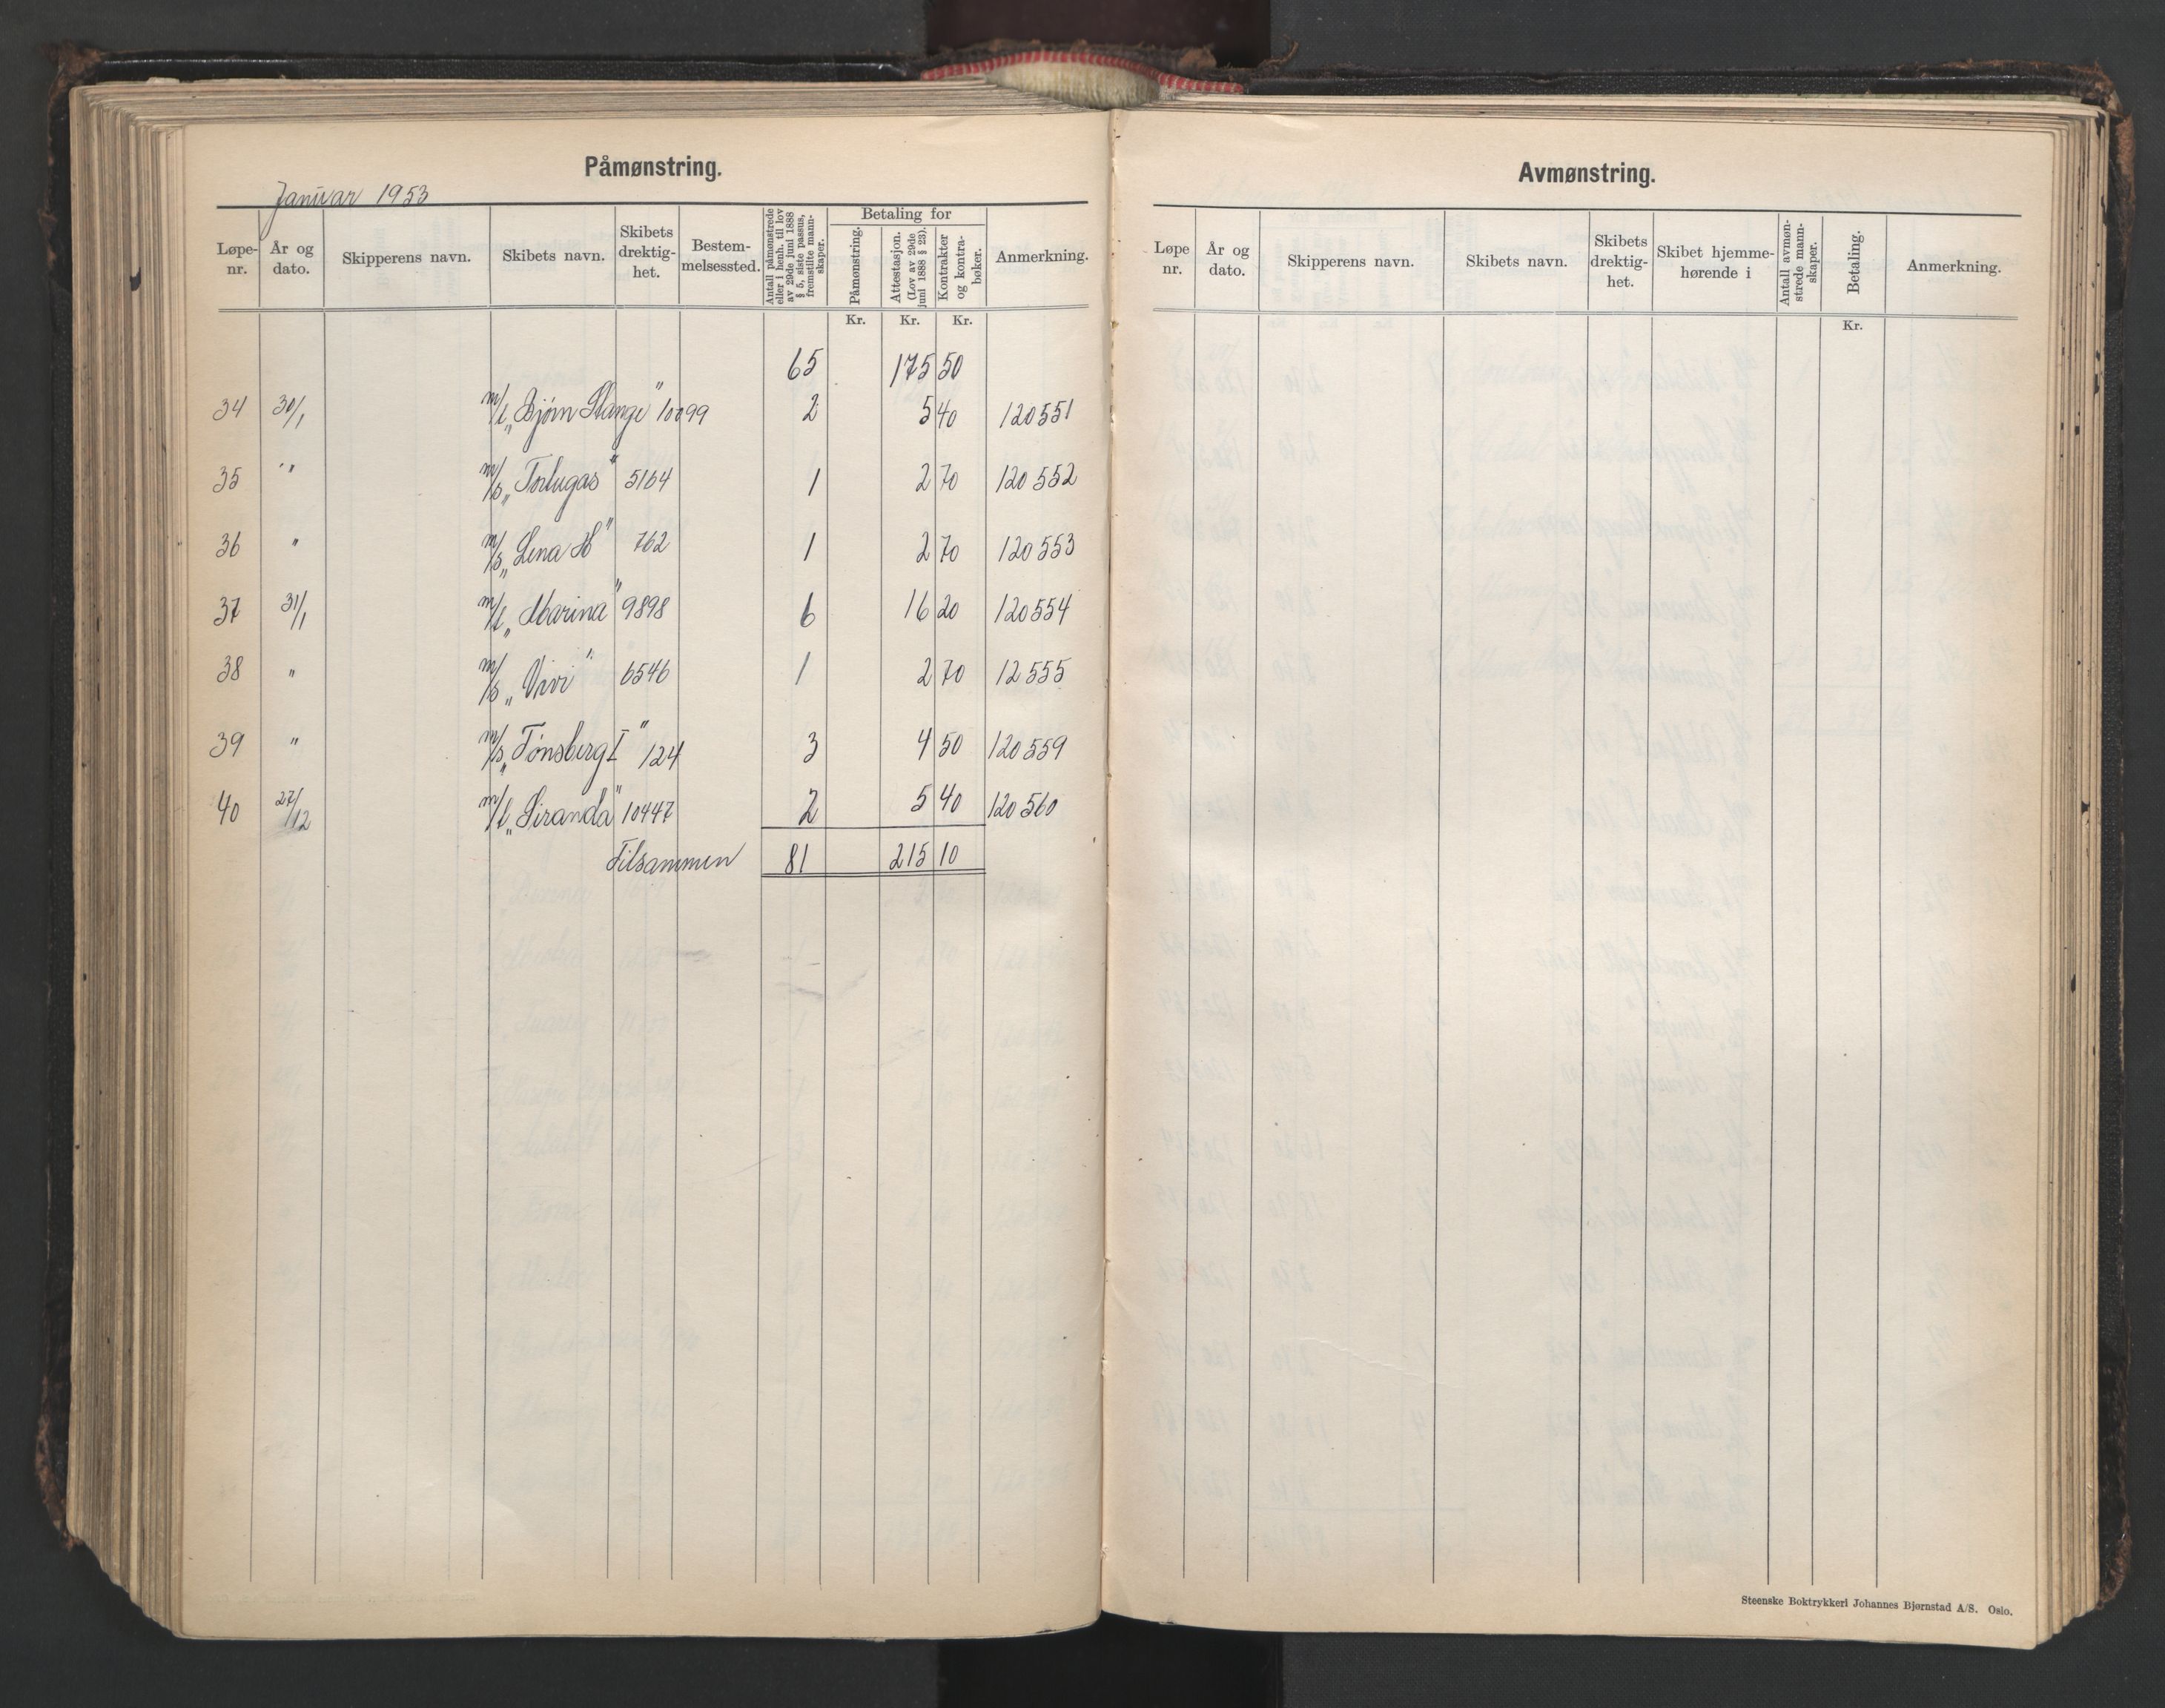 Påmønstring.
Januar 1953
Løpe-nr. År og dato. Skipperens navn. Skibets navn. Skibets drektig-het. Bestem-melsessted. Antall påmønstrede eller i henh. til lov av 29de juni 1888 § 5, siste passus, fremstilte mann-skaper. Betaling for Påmønstring. Attestasjon. (Lov av 29de juni 1888 § 23). Kontrakter og kontra-bøker. Anmerkning.
Kr. Kr. Kr.
65 175 50
34 30/1 m/t „Bjørn Stange" 10099 2 5 40 120551
35 " m/s „Tortugas" 5164 1 2 70 120552
36 " m/s „Lena H" 762 1 2 70 120553
37 31/1 m/t „Marina" 9898 6 16 20 120554
38 " m/s „Vivi" 6546 1 2 70 12555
39 " m/s „Tønsberg I" 124 3 4 50 120559
40 27/12 m/t „Siranda" 10447 2 5 40 120560
Tilsammen 81 215 10
Avmønstring.
Løpe nr. År og dato. Skipperens navn. Skibets navn. Skibets drektig-het. Skibet hjemme-hørende i Antall avmøn-strede mann-skaper. Betaling. Anmerkning.
Kr.
Steenske Boktrykkeri Johannes Bjørnstad A/S. Oslo.